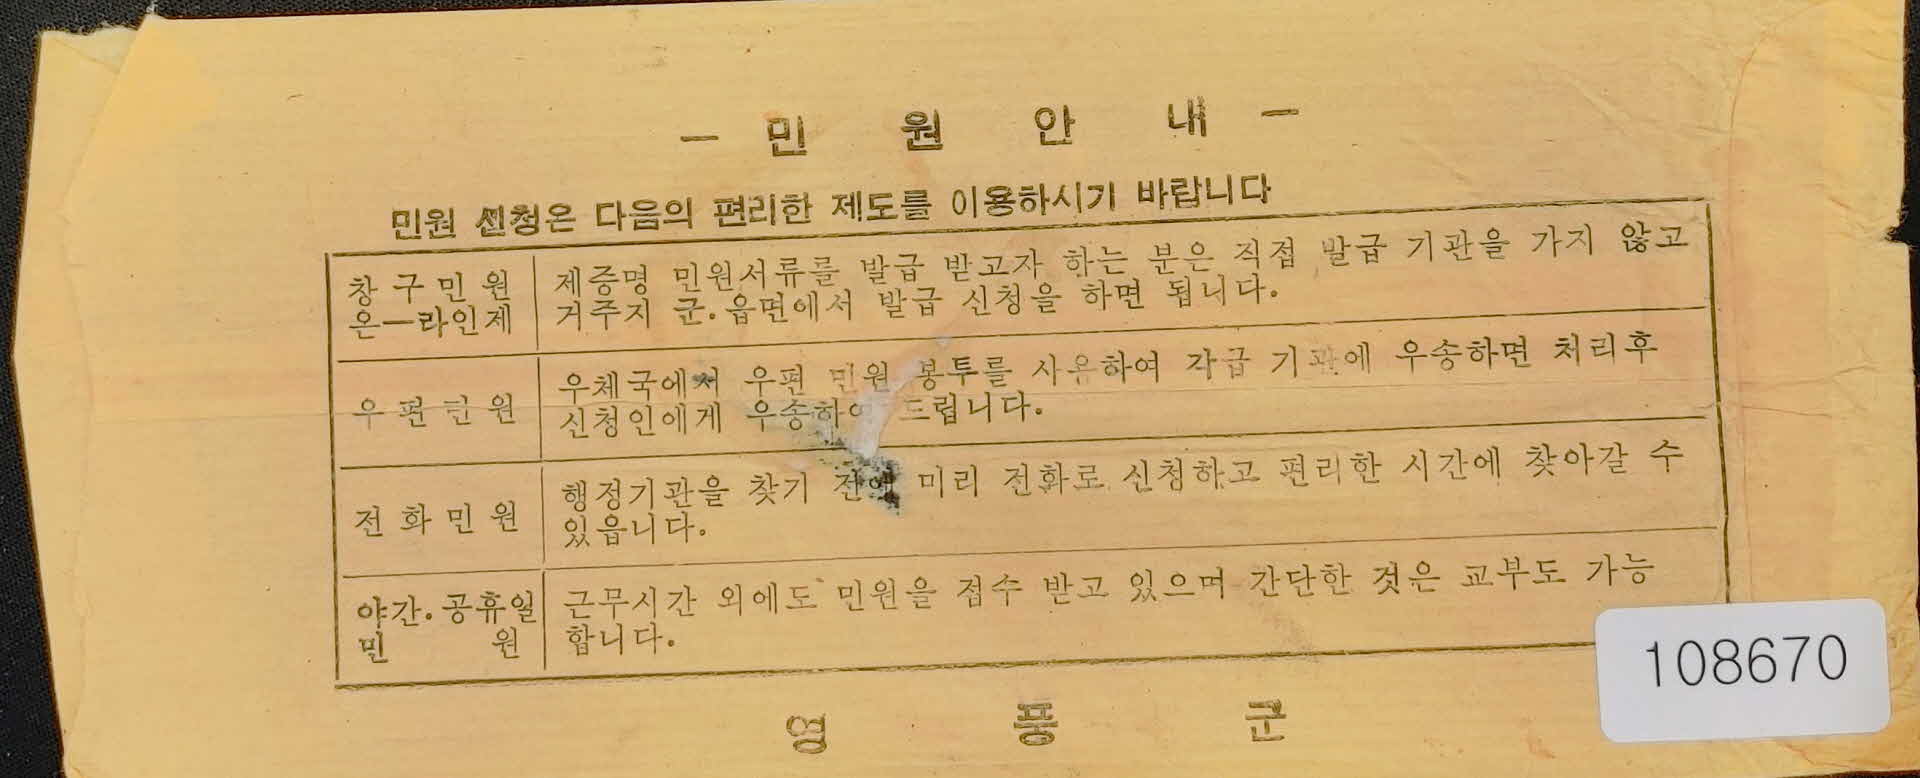 — 민 원 안 내 —
민원 신청은 다음의 편리한 제도를 이용하시기 바랍니다
창 구 민 원
온—라인제
제증명 민원서류를 발급 받고자 하는 분은 직접 발급 기관을 가지 않고
거주지 군.읍면에서 발급 신청을 하면 됩니다.
우 편 민 원
우체국에서 우편 민원 봉투를 사용하여 각급 기관에 우송하면 처리후
신청인에게 우송하여 드립니다.
전 화 민 원
행정기관을 찾기 전에 미리 전화로 신청하고 편리한 시간에 찾아갈 수
있읍니다.
야간.공휴일
민 원
근무시간 외에도 민원을 접수 받고 있으며 간단한 것은 교부도 가능
합니다.
영 풍 군
108670